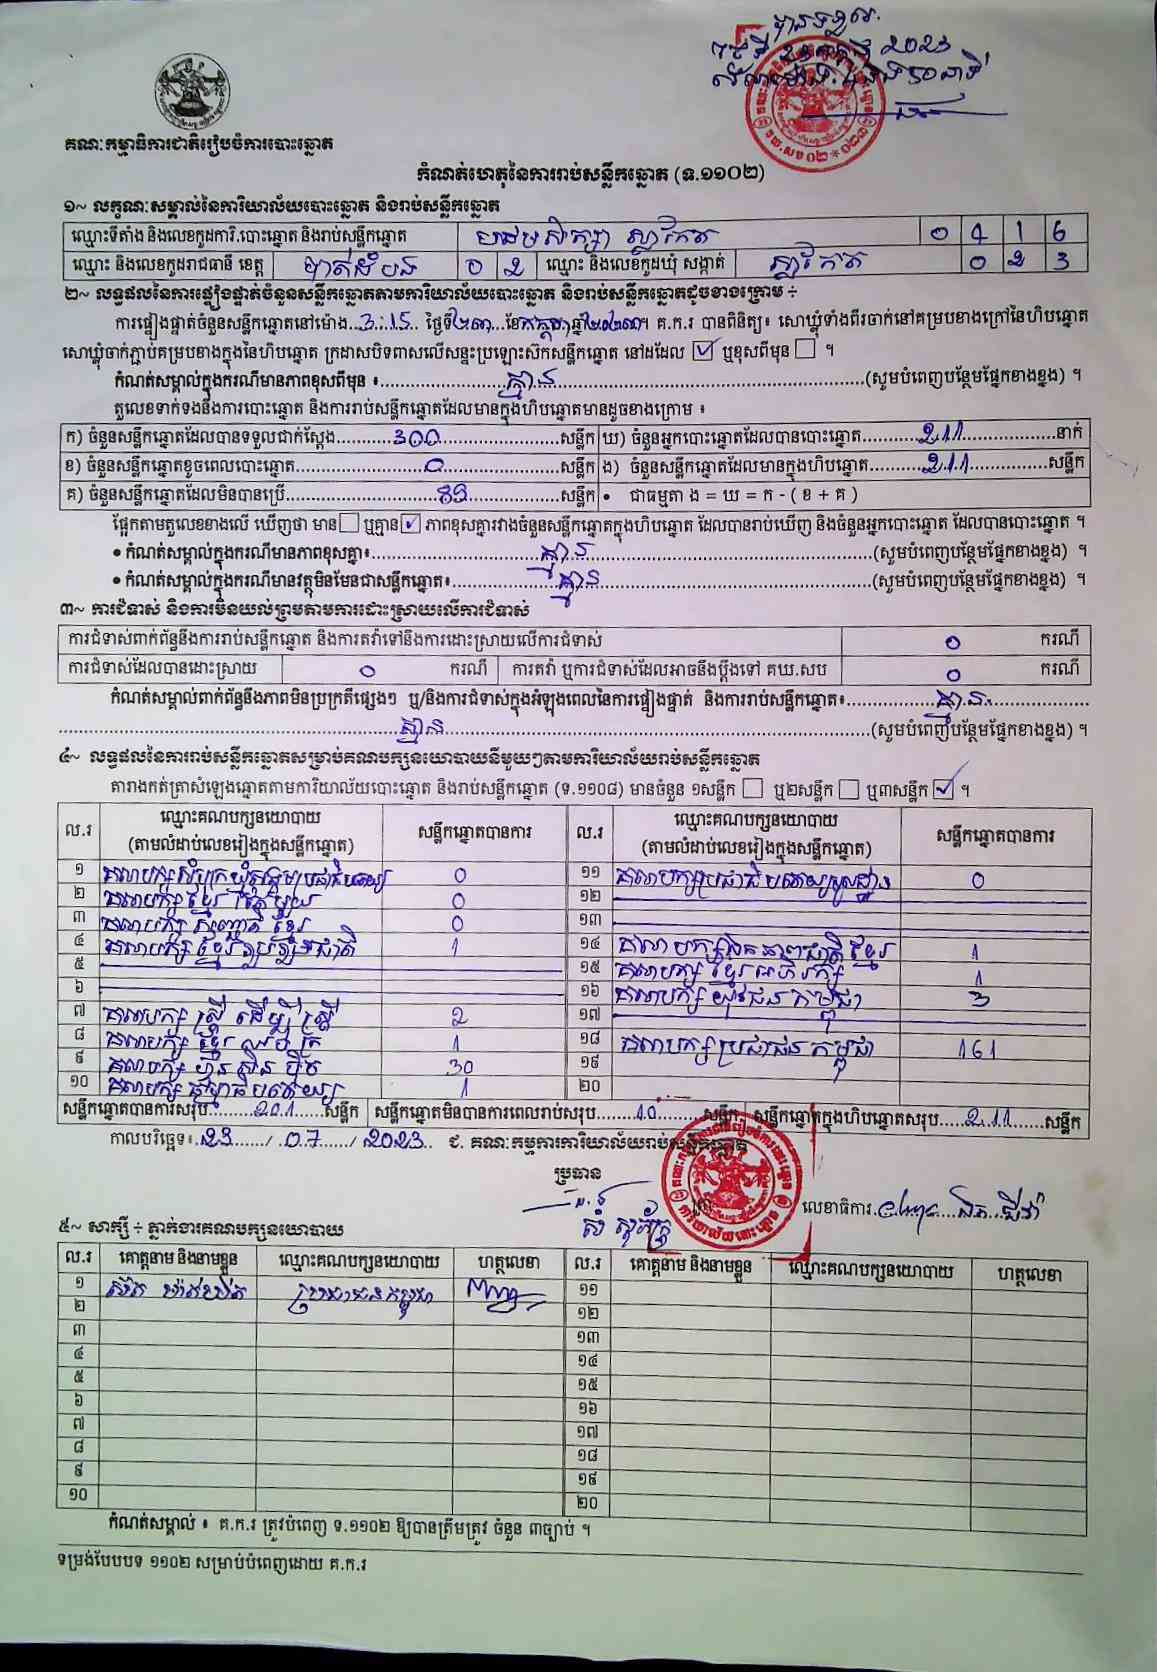 បានទទួល
ថ្ងៃទី ២៣ កក្កដា 2023
គណៈកម្មាធិការជាតិរៀបចំការបោះឆ្នោត
កំណត់ហេតុនៃការរាប់សន្លឹកឆ្នោត (ទ.១១០២)
១~ លក្ខណៈសម្គាល់នៃការិយាល័យបោះឆ្នោត និងរាប់សន្លឹកឆ្នោត
ឈ្មោះទីតាំង និងលេខកូដការិ.បោះឆ្នោត និងរាប់សន្លឹកឆ្នោត បឋមសិក្សា ស្លាកែត 0 4 1 6
ឈ្មោះ និងលេខកូដរាជធានី ខេត្ត បាត់ដំបង 0 2 ឈ្មោះ និងលេខកូដឃុំ សង្កាត់ ស្លាកែត 0 2 3
២~ លទ្ធផលនៃការផ្ទៀងផ្ទាត់ចំនួនសន្លឹកឆ្នោតតាមការិយាល័យបោះឆ្នោត និងរាប់សន្លឹកឆ្នោតដូចខាងក្រោម ៖
ការផ្ទៀងផ្ទាត់ចំនួនសន្លឹកឆ្នោតនៅម៉ោង...3:15... ថ្ងៃទី២៣...ខែកក្កដា ឆ្នាំ២០២៣។ គ.ក.រ បានពិនិត្យ៖ សោឃ្លុំទាំងពីរចាក់នៅគម្របខាងក្រៅនៃហិបឆ្នោត
សោឃ្លុំចាក់ភ្ជាប់គម្របខាងក្នុងនៃហិបឆ្នោត ក្រដាសបិទពាសលើសន្ទះប្រឡោះស៊កសន្លឹកឆ្នោត នៅដដែល ☑ ឬខុសពីមុន ☐ ។
កំណត់សម្គាល់ក្នុងករណីមានភាពខុសពីមុន ៖...គ្មាន...(សូមបំពេញបន្ថែមផ្នែកខាងខ្នង) ។
តួលេខទាក់ទងនឹងការបោះឆ្នោត និងការរាប់សន្លឹកឆ្នោតដែលមានក្នុងហិបឆ្នោតមានដូចខាងក្រោម ៖
ក) ចំនួនសន្លឹកឆ្នោតដែលបានទទួលជាក់ស្តែង...300...សន្លឹក ឃ) ចំនួនអ្នកបោះឆ្នោតដែលបានបោះឆ្នោត...211...នាក់
ខ) ចំនួនសន្លឹកឆ្នោតខូចពេលបោះឆ្នោត...0...សន្លឹក ង) ចំនួនសន្លឹកឆ្នោតដែលមានក្នុងហិបឆ្នោត...211...សន្លឹក
គ) ចំនួនសន្លឹកឆ្នោតដែលមិនបានប្រើ...89...សន្លឹក • ជាធម្មតា ង = ឃ = ក - ( ខ + គ )
ផ្អែកតាមតួលេខខាងលើ ឃើញថា មាន☐ ឬគ្មាន☑ ភាពខុសគ្នារវាងចំនួនសន្លឹកឆ្នោតក្នុងហិបឆ្នោត ដែលបានរាប់ឃើញ និងចំនួនអ្នកបោះឆ្នោត ដែលបានបោះឆ្នោត ។
• កំណត់សម្គាល់ក្នុងករណីមានភាពខុសគ្នា៖...គ្មាន...(សូមបំពេញបន្ថែមផ្នែកខាងខ្នង) ។
• កំណត់សម្គាល់ក្នុងករណីមានវត្ថុមិនមែនជាសន្លឹកឆ្នោត៖...គ្មាន...(សូមបំពេញបន្ថែមផ្នែកខាងខ្នង) ។
៣~ ការជំទាស់ និងការមិនយល់ព្រមតាមការដោះស្រាយលើការជំទាស់
ការជំទាស់ពាក់ព័ន្ធនឹងការរាប់សន្លឹកឆ្នោត និងការតវ៉ាទៅនឹងការដោះស្រាយលើការជំទាស់ 0 ករណី
ការជំទាស់ដែលបានដោះស្រាយ 0 ករណី ការតវ៉ា ឬការជំទាស់ដែលអាចនឹងប្តឹងទៅ គឃ.សប 0 ករណី
កំណត់សម្គាល់ពាក់ព័ន្ធនឹងភាពមិនប្រក្រតីផ្សេងៗ ឬ/និងការជំទាស់ក្នុងអំឡុងពេលនៃការផ្ទៀងផ្ទាត់ និងការរាប់សន្លឹកឆ្នោត៖...គ្មាន...
...គ្មាន...(សូមបំពេញបន្ថែមផ្នែកខាងខ្នង) ។
៤~ លទ្ធផលនៃការរាប់សន្លឹកឆ្នោតសម្រាប់គណបក្សនយោបាយនីមួយៗតាមការិយាល័យរាប់សន្លឹកឆ្នោត
តារាងកត់ត្រាសំឡេងឆ្នោតតាមការិយាល័យបោះឆ្នោត និងរាប់សន្លឹកឆ្នោត (ទ.១១០៨) មានចំនួន ១សន្លឹក ☐ ឬ២សន្លឹក ☐ ឬ៣សន្លឹក ☑ ។
ល.រ ឈ្មោះគណបក្សនយោបាយ (តាមលំដាប់លេខរៀងក្នុងសន្លឹកឆ្នោត) សន្លឹកឆ្នោតបានការ ល.រ ឈ្មោះគណបក្សនយោបាយ (តាមលំដាប់លេខរៀងក្នុងសន្លឹកឆ្នោត) សន្លឹកឆ្នោតបានការ
១ គណបក្សសំបុក្រឃ្មុំសង្គមប្រជាធិបតេយ្យ 0 ១១ គណបក្សប្រជាធិបតេយ្យមូលដ្ឋាន 0
២ គណបក្ស ខ្មែរតែមួយ 0 ១២
៣ គណបក្ស សញ្ជាតិ ខ្មែរ 0 ១៣
៤ គណបក្ស ខ្មែរ រួបរួមជាតិ 1 ១៤ គណបក្សឯកភាពជាតិខ្មែរ 1
៥ ១៥ គណបក្ស ខ្មែរ អភិរក្ស 1
៦ ១៦ គណបក្ស យុវជន កម្ពុជា 3
៧ គណបក្ស ស្ត្រី ដើម្បី ស្ត្រី 2 ១៧
៨ គណបក្ស ខ្មែរ ឈប់ក្រ 1 ១៨ គណបក្សប្រជាជនកម្ពុជា 161
៩ គណបក្ស ហ៊្វុនស៊ិនប៉ិច 30 ១៩
១០ គណបក្ស ធម្មាធិបតេយ្យ 1 ២០
សន្លឹកឆ្នោតបានការសរុប...201...សន្លឹក សន្លឹកឆ្នោតមិនបានការពេលរាប់សរុប...10...សន្លឹក សន្លឹកឆ្នោតក្នុងហិបឆ្នោតសរុប...211...សន្លឹក
កាលបរិច្ឆេទ៖..23....../..07....../ 2023.. ជ. គណៈកម្មការការិយាល័យរាប់សន្លឹកឆ្នោត
ប្រធាន
លេខាធិការ
៥~ សាក្សី ៖ ភ្នាក់ងារគណបក្សនយោបាយ
ល.រ គោត្តនាម និងនាមខ្លួន ឈ្មោះគណបក្សនយោបាយ ហត្ថលេខា ល.រ គោត្តនាម និងនាមខ្លួន ឈ្មោះគណបក្សនយោបាយ ហត្ថលេខា
១ ប្រជាជនកម្ពុជា ១១
២ ១២
៣ ១៣
៤ ១៤
៥ ១៥
៦ ១៦
៧ ១៧
៨ ១៨
៩ ១៩
១០ ២០
កំណត់សម្គាល់ ៖ គ.ក.រ ត្រូវបំពេញ ទ.១១០២ ឱ្យបានត្រឹមត្រូវ ចំនួន ៣ច្បាប់ ។
ទម្រង់បែបបទ ១១០២ សម្រាប់បំពេញដោយ គ.ក.រ